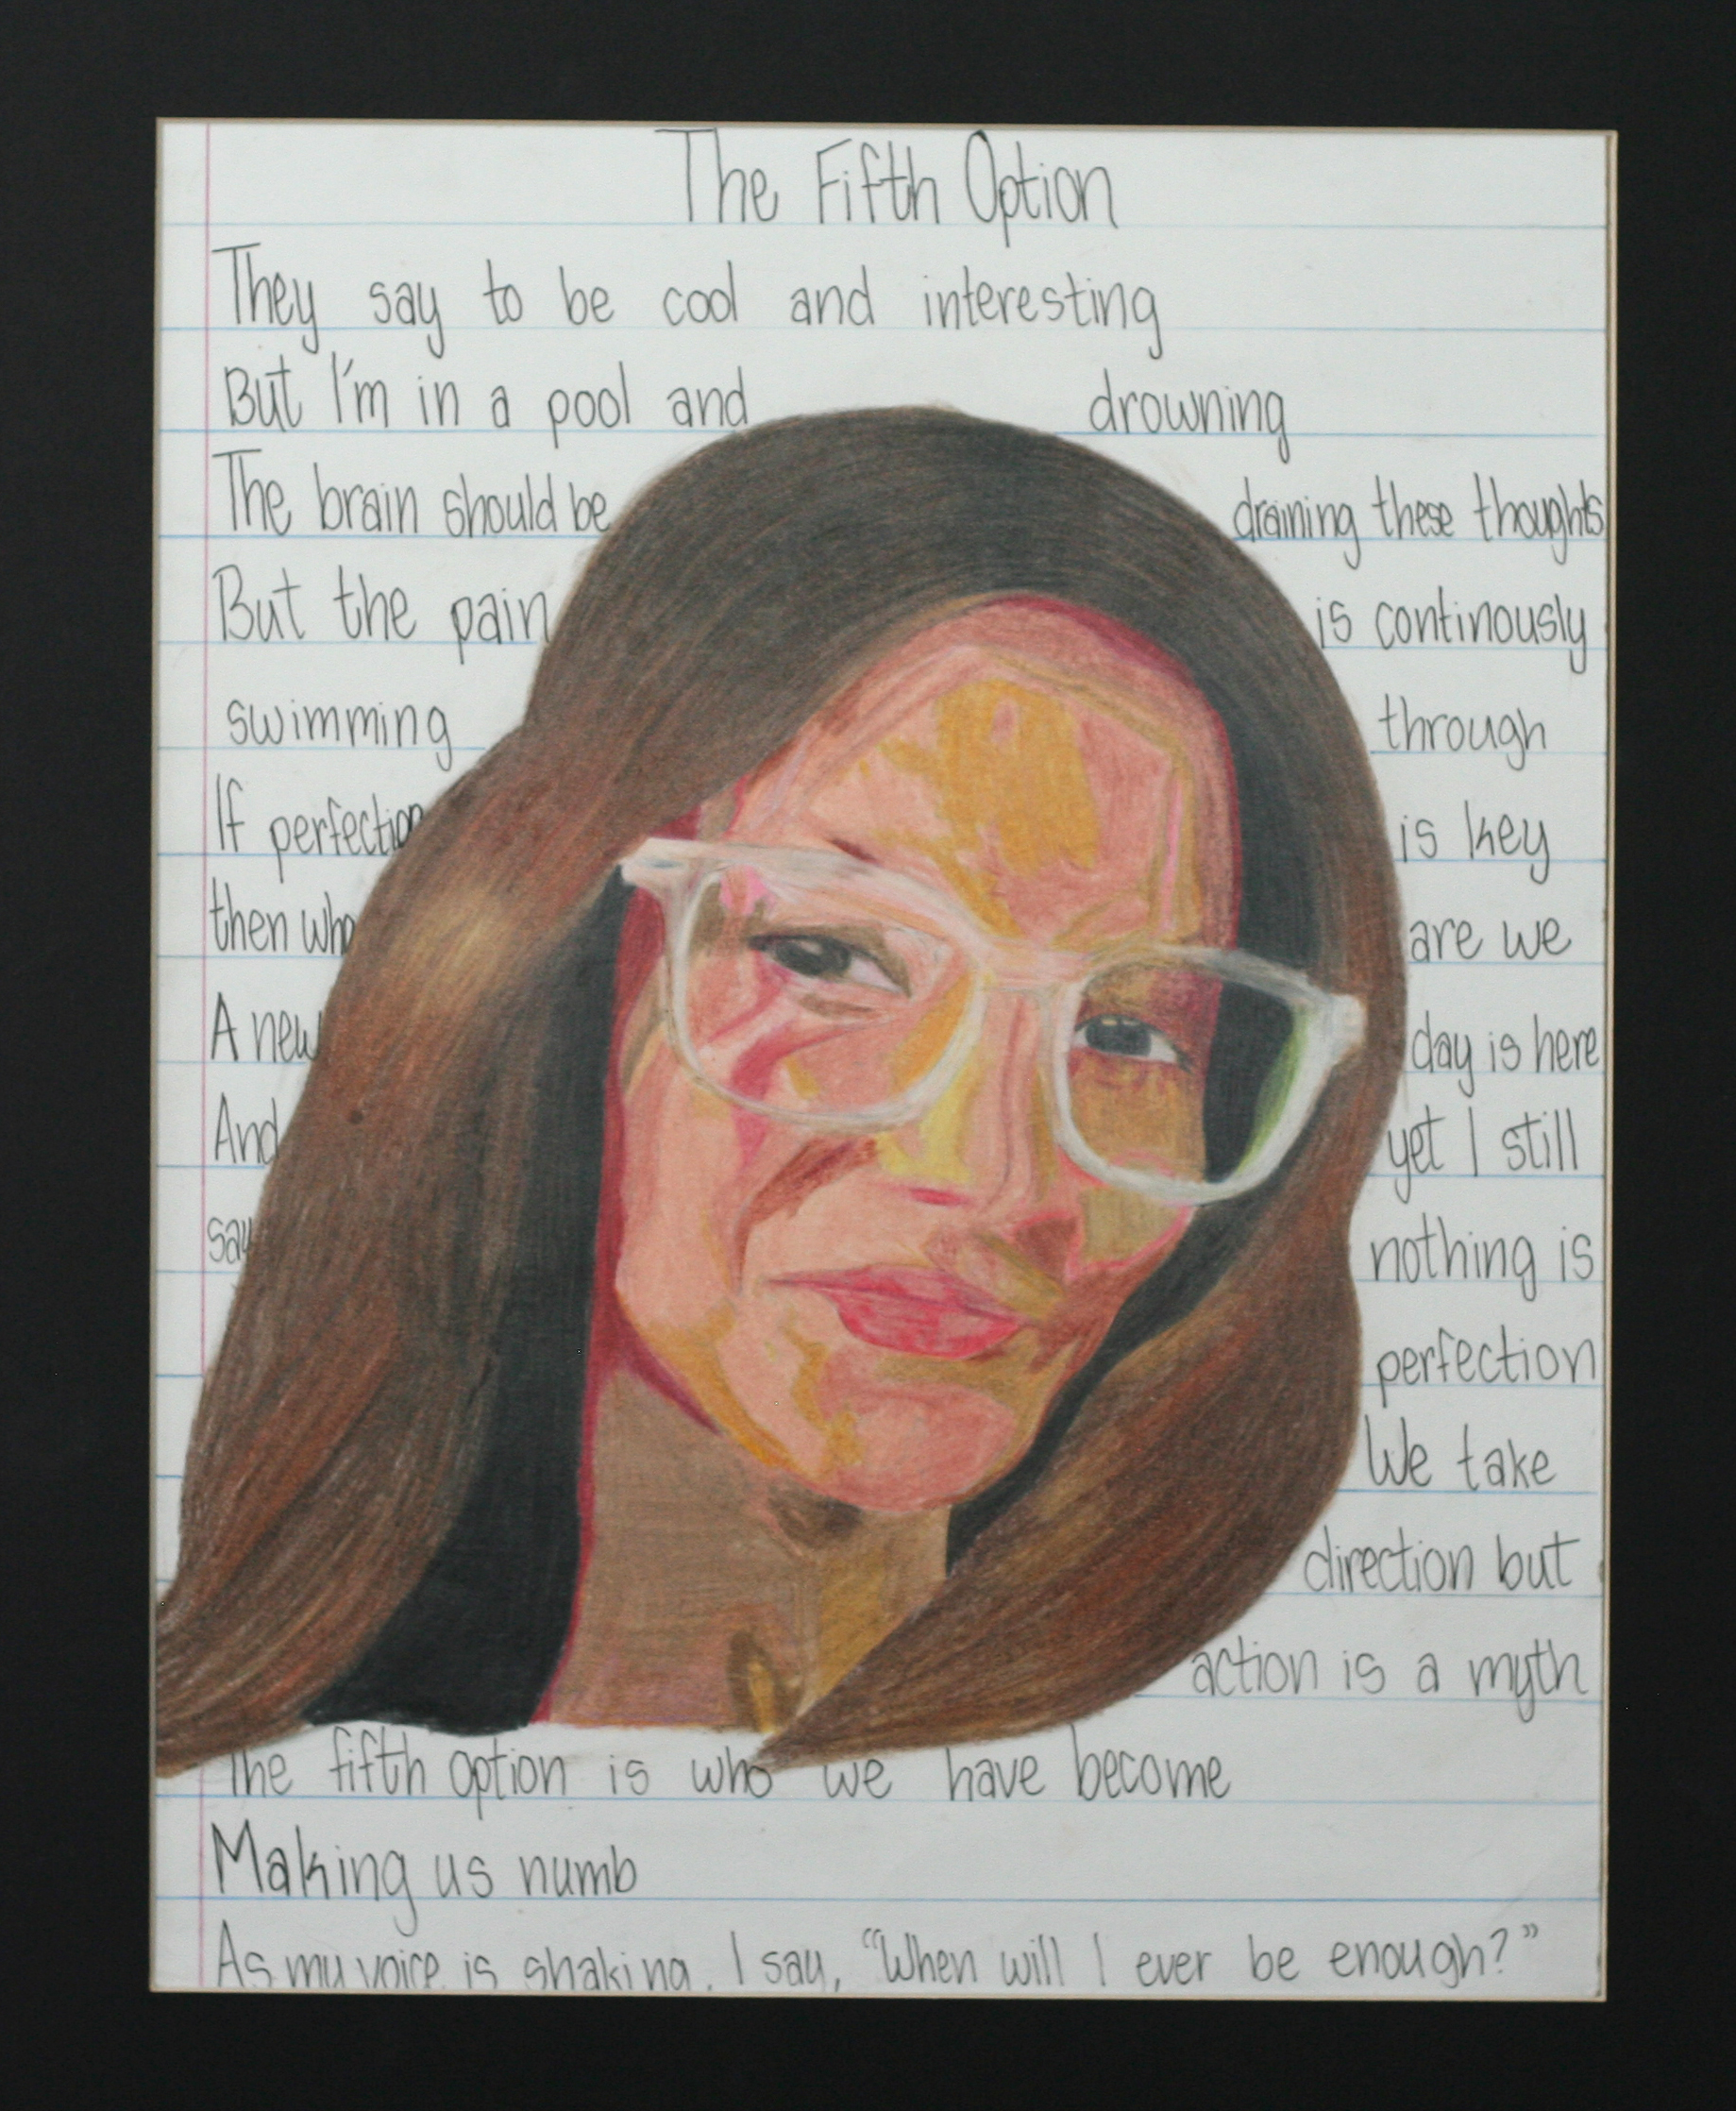 The Fifth Option
They say to be cool and interesting
But I'm in a pool and drowning
The brain should be draining these thoughts
But the pain is continously
swimming through
If perfection is key
then who are we
A new day is here
And yet I still
say nothing is
perfection
We take
direction but
action is a myth
The fifth option is who we have become
Making us numb
As my voice is shaking, I say, “When will I ever be enough?”